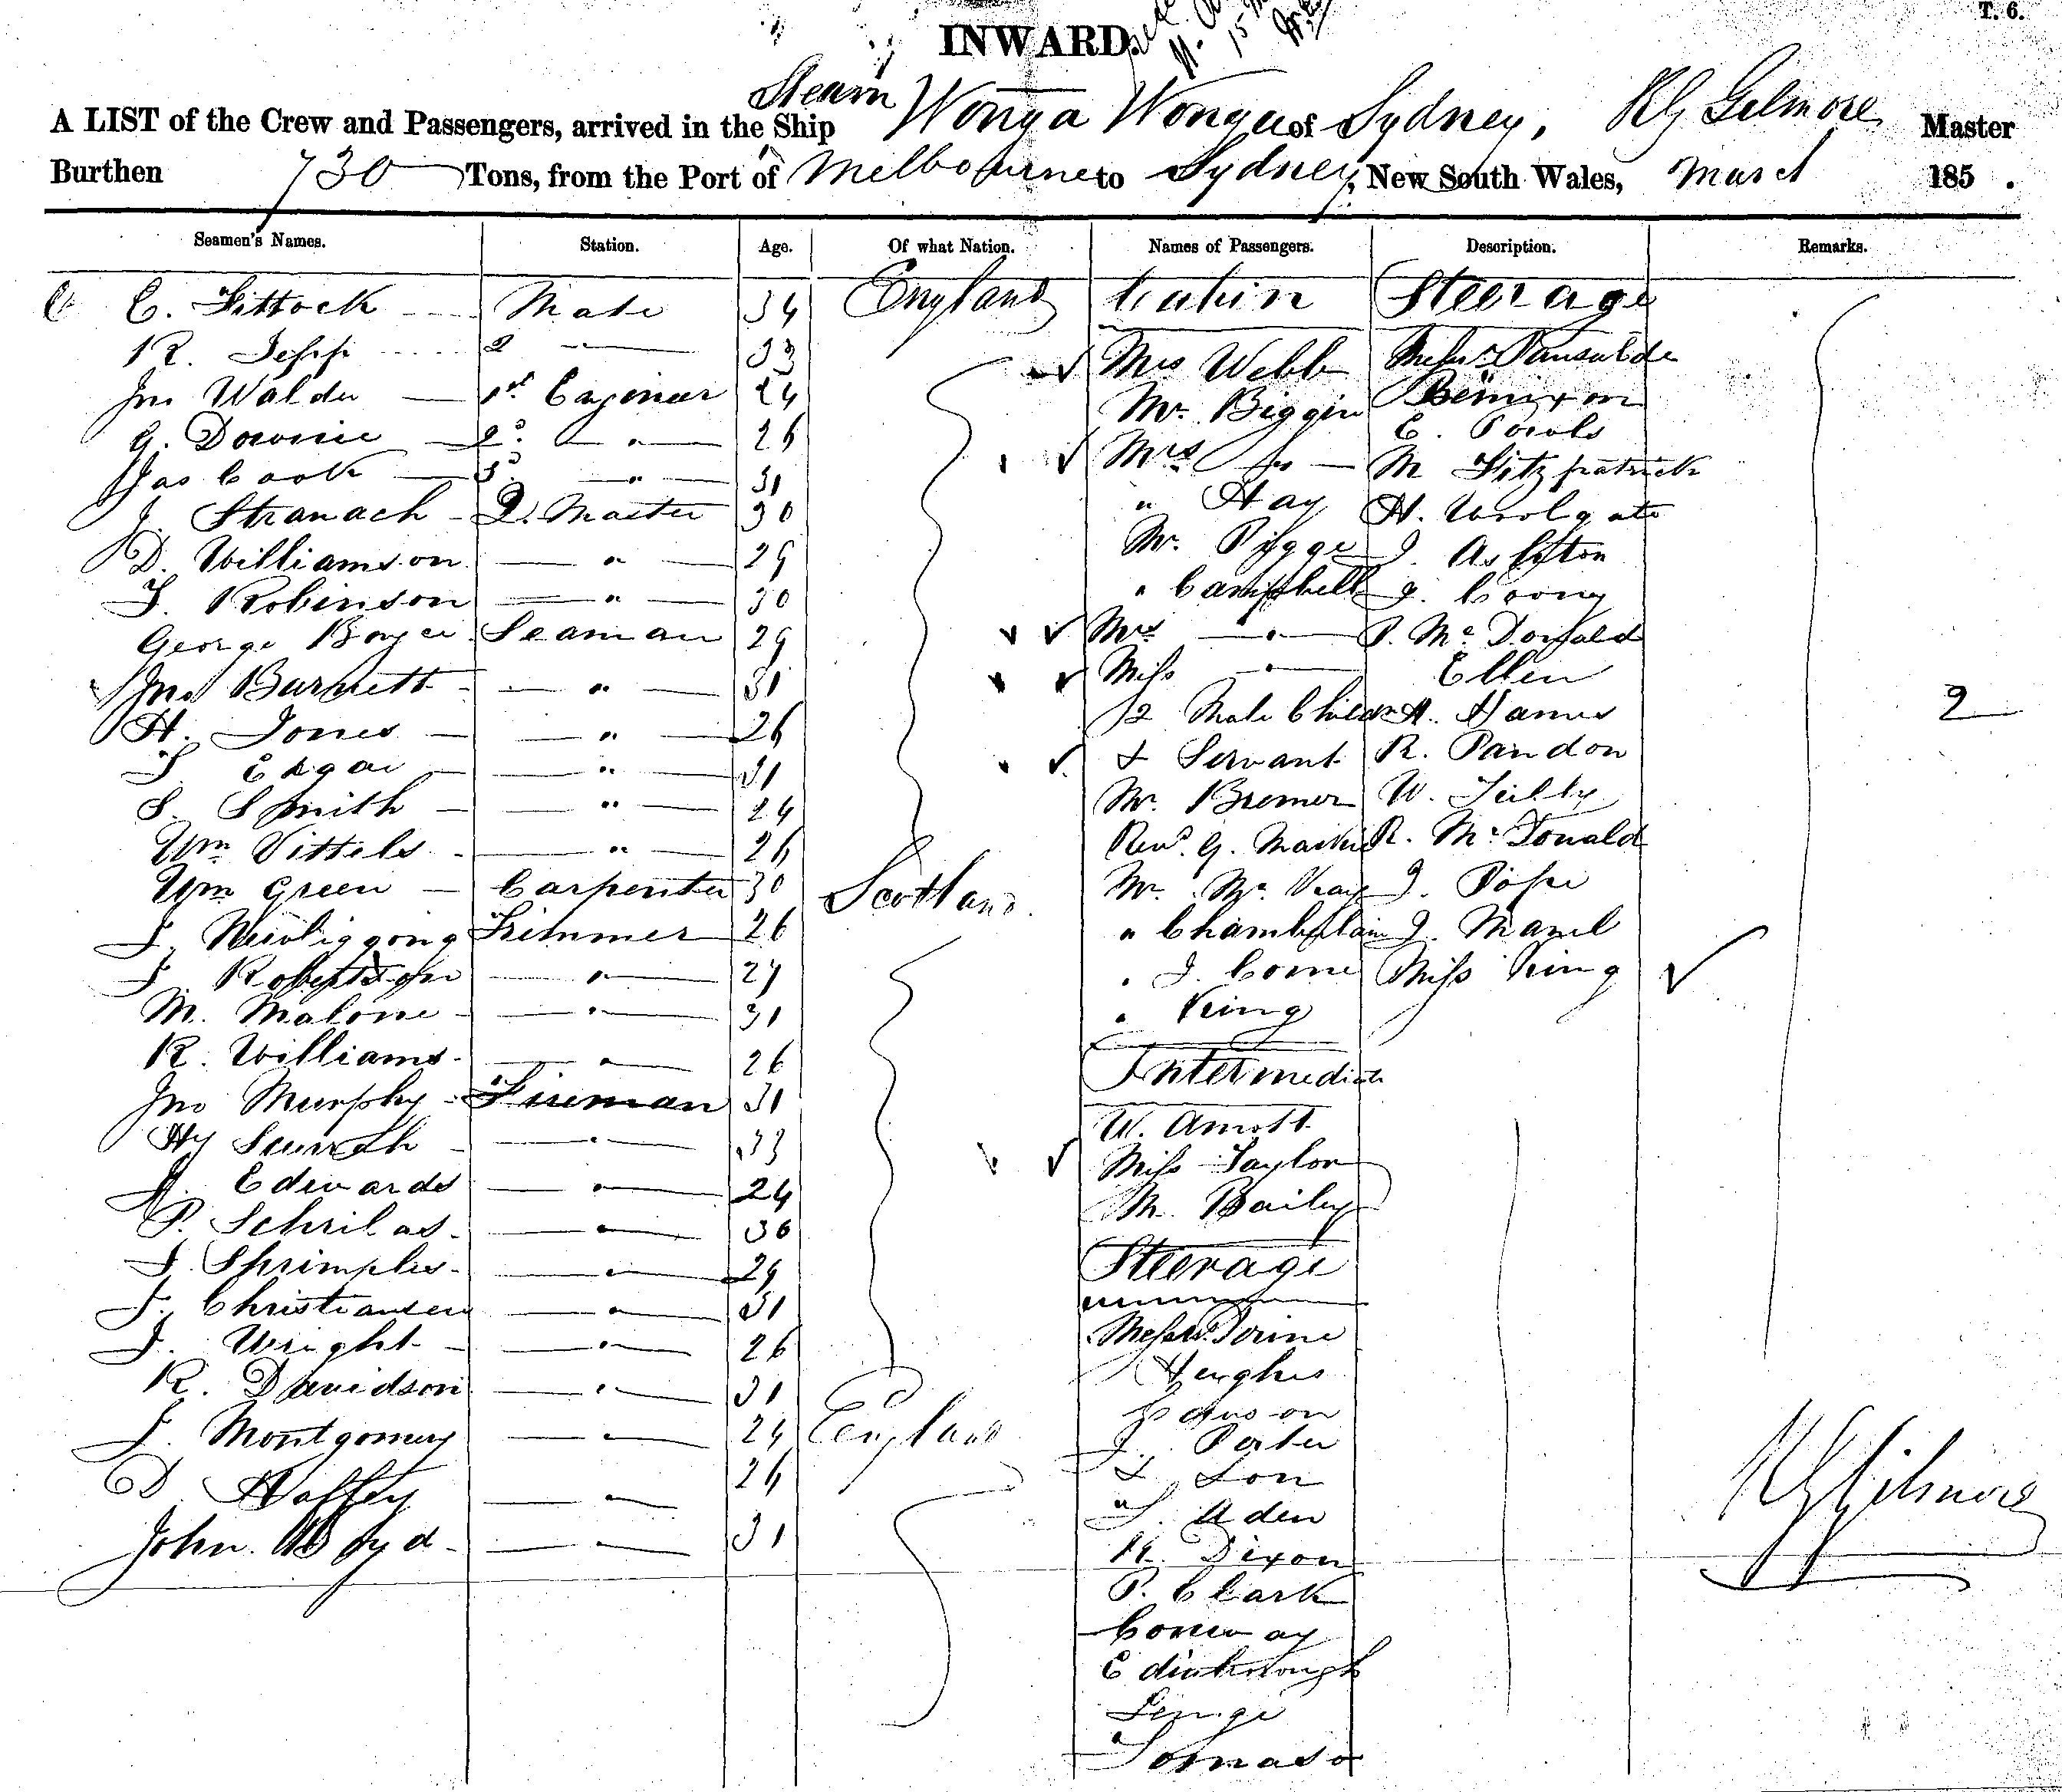 T. 6.
INWARD.
A LIST of the Crew and Passengers, arrived in the Steam Ship Wonga Wonga of Sydney, RG Gilmore Master
Burthen 730 Tons, from the Port of Melbourne to Sydney, New South Wales, March 185 .
Seamen's Names. Station. Age. Of what Nation. Names of Passengers. Description. Remarks.
C. Fittock Mate 34 England Cabin Steerage
R. Jepp 2 " 33 Mrs Webb Messrs
Jno Walder 1st Engineer 24 Mr. Biggin
G. Downie 2d " 26 Mrs Do E.
Jas Cook 3d " 31 " Hay M Fitzpatrick
J. Stranach Q. Master 30 Mr. Pigge H. Woolgate
D. Williamson " 29 " Campbell J. Ashton
J. Robinson " 30 Mrs " J. Coony
George Boyce Seaman 29 Miss " P. McDonald
Jno Burnett " 31 2 Male Childn Ellen
H. Jones " 26 & Servant A. James
J Edgar " 31 Mr. Bremer R. Pandon
S. Smith " 24 Revd. G. Mackie W. Tully
Wm Vittels " 26 Mr. R. McDonald
Wm Green Carpenter 30 Scotland " Chamberlain J. Pope
J. Trimmer 26 " J. Corne J. Manel
J Robertson " 27 " King Miss King
M. Malone " 31
R. Williams " 26 Intermediate
Jno Murphy Fireman 31 W. Arnott
Hy " 33 Miss Taylor
J. Edwards " 24 M. Bailey
P. Schrilas " 30 Steerage
J. Shrimples " 29 Messrs. Dorine
J. Christiansen " 31 Hughes
J. Wright " 26 Cawson
R. Davidson " 31 J. Porter
J. Montgomery " 24 England & Son
D Haffey " 26 J. Aden
John Boyd " 31 H. Dixon
P. Clark
Conway
Edinborough
Tomaso
2
RG Gilmore